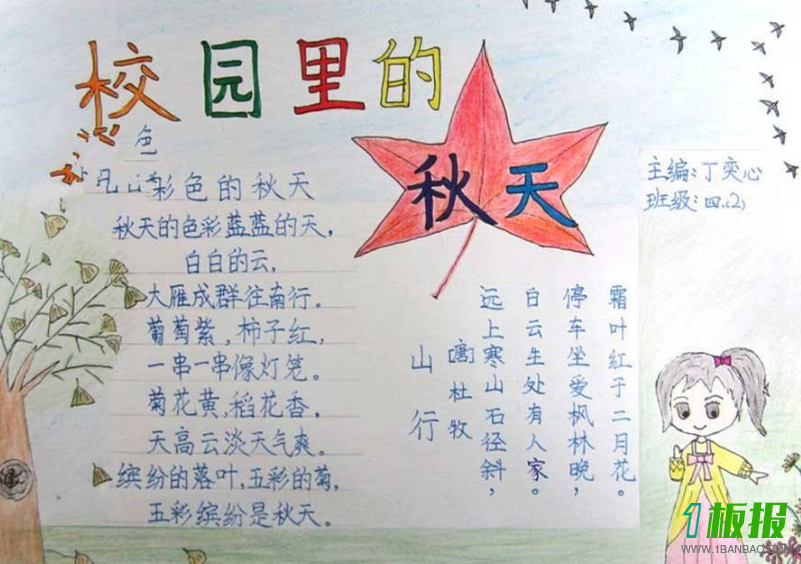 校园里的
秋天
色
彩色的秋天
秋天的色彩蓝蓝的天,
白白的云,
大雁成群往南行。
葡萄紫,柿子红,
一串一串像灯笼。
菊花黄,稻花香,
天高云淡天气爽。
缤纷的落叶,五彩的菊,
五彩缤纷是秋天。
山行
[唐]杜牧
远上寒山石径斜,
白云生处有人家。
停车坐爱枫林晚,
霜叶红于二月花。
主编:丁奕心
班级:四.(2)
1板报
WWW.1BANBAO.COM